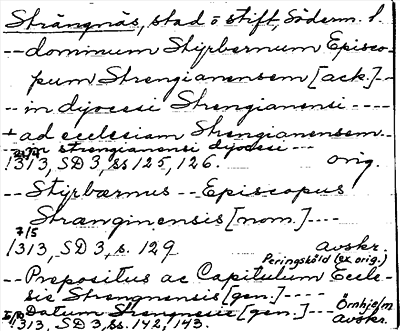 Strängnäs, stad o stift, Söderm. l.
-- dominum Styrbernum Episco-
pum Strengianensem [ack.] --
-- in dyocesi Strengianensi ----
+ ad ecclesiam Strengianensem --
-- in strengianensi dyocesi --
1313, SD 3, ss 125, 126. orig.
-- Styrbærnus -- Episcopus
Stranginensis [nom.] ---
7/5
1313, SD 3, s. 129 avskr.
Peringsköld (ex orig.)
-- Prepositus ac Capitulum Eccle-
sie Strengnensis [gen.] ----
-- Datum Strengnesie [gen.] --- Örnhjelm
1313, SD 3, ss. 142, 143. avskr.